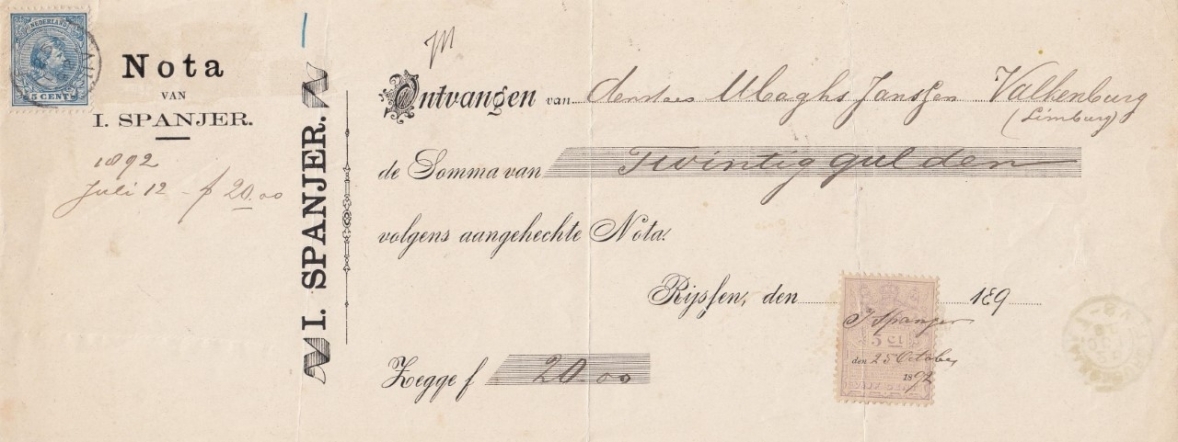 NEDERLAND
5 CENT
Nota
VAN
I. SPANJER.
1892
Juli 12 - f 20.00
I. SPANJER.
Ontvangen van Ubaghs Janssen Valkenburg
(Limburg)
de Somma van Twintig gulden
volgens aangehechte Nota.
Rijssen, den 189
I Spanjer
5 CT
den 25 October
1892
Zegge f 20.00